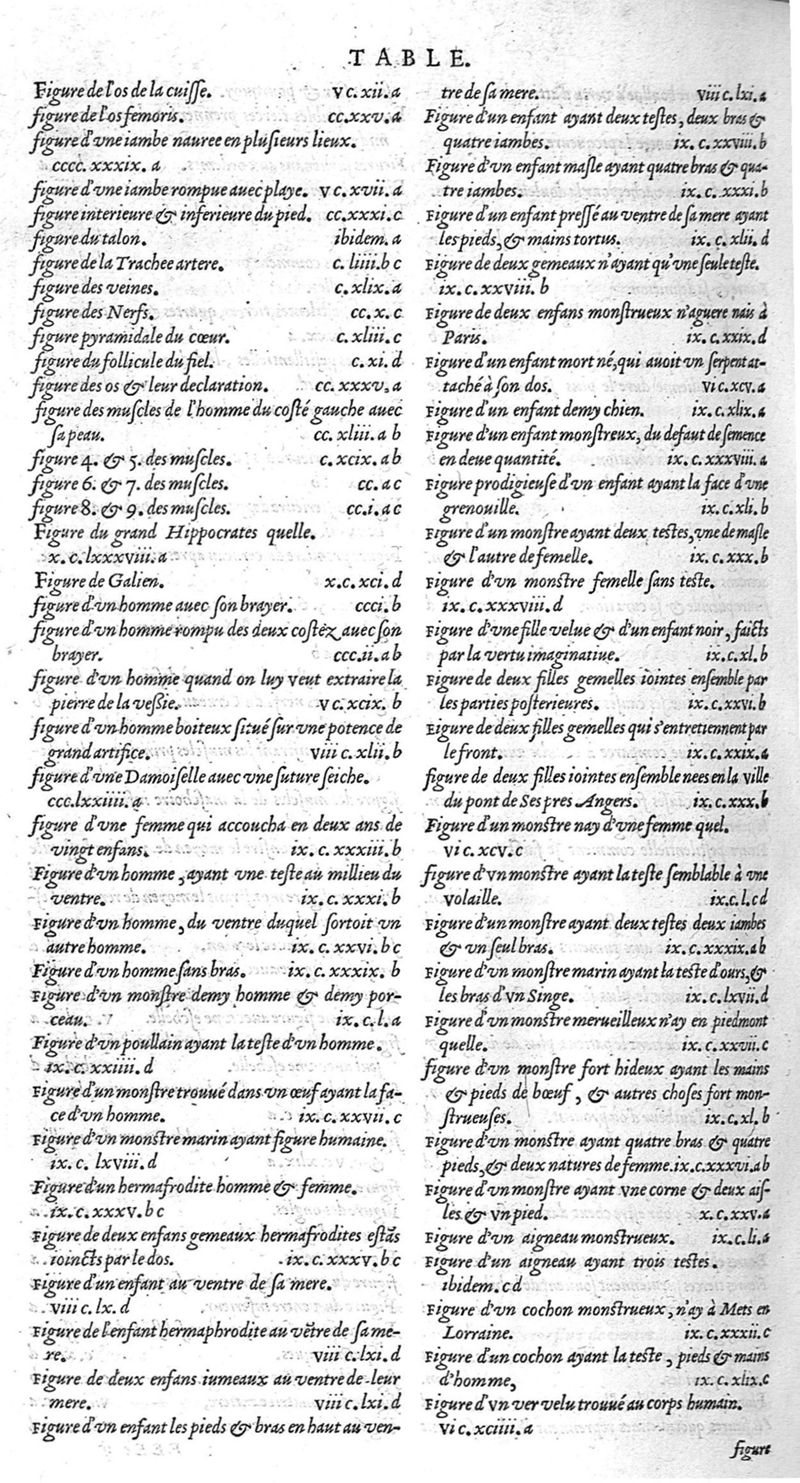 TABLE.
Figure de l'os de la cuisse. v c.xii.a
figure de l'os femoris. cc.xxv.a
figure d'vne iambe nauree en plusieurs lieux.
cccc.xxxix.a
figure d'vne iambe rompue auec playe. v c.xvii.a
figure interieure & inferieure du pied. cc.xxxi.c
figure du talon. ibidem.a
figure de la Trachee artere. c.liiii.b c
figure des veines. c.xlix.a
figure des Nerfs. cc.x.c
figure pyramidale du cœur. c.xliii.c
figure du follicule du fiel. c.xi.d
figure des os & leur declaration. cc.xxxv.a
figure des muscles de l'homme du costé gauche auec
sa peau. cc.xliii.a b
figure 4. & 5. des muscles. c.xcix.a b
figure 6. & 7. des muscles. cc.a c
figure 8. & 9. des muscles. cc.i.a c
Figure du grand Hippocrates quelle.
x.c.lxxxviii.a
Figure de Galien. x.c.xci.d
figure d'vn homme auec son brayer. ccci.b
figure d'vn homme rompu des deux costez auec son
brayer. ccc.ii.a b
figure d'vn homme quand on luy veut extraire la
pierre de la vessie. v c.xcix.b
figure d'vn homme boiteux situé sur vne potence de
grand artifice. viii c.xlii.b
figure d'vne Damoiselle auec vne suture seiche.
ccc.lxxiiii.a
figure d'vne femme qui accoucha en deux ans de
vingt enfans. ix.c.xxxiii.b
Figure d'vn homme, ayant vne teste au millieu du
ventre. ix.c.xxxi.b
Figure d'vn homme, du ventre duquel sortoit vn
autre homme. ix.c.xxvi.b c
Figure d'vn homme sans bras. ix.c.xxxix.b
Figure d'vn monstre demy homme & demy por-
ceau. ix.c.l.a
Figure d'vn poullain ayant la teste d'vn homme.
ix.c.xxiiii.d
Figure d'un monstre trouué dans vn œuf ayant la fa-
ce d'vn homme. ix.c.xxvii.c
Figure d'vn monstre marin ayant figure humaine.
ix.c.lxviii.d
Figure d'un hermafrodite homme & femme.
ix.c.xxxv.b c
Figure de deux enfans gemeaux hermafrodites estãs
ioincts par le dos. ix.c.xxxv.b c
Figure d'un enfant au ventre de sa mere.
viii c.lx.d
Figure de l'enfant hermaphrodite au vẽtre de sa me-
re. viii c.lxi.d
Figure de deux enfans iumeaux au ventre de leur
mere. viii c.lxi.d
Figure d'vn enfant les pieds & bras en haut au ven-
tre de sa mere. viii c.lxi.a
Figure d'un enfant ayant deux testes, deux bras &
quatre iambes. ix.c.xxviii.b
Figure d'vn enfant masle ayant quatre bras & qua-
tre iambes. ix.c.xxxi.b
Figure d'un enfant pressé au ventre de sa mere ayant
les pieds, & mains tortus. ix.c.xlii.d
Figure de deux gemeaux n'ayant qu'vne seule teste.
ix.c.xxviii.b
Figure de deux enfans monstrueux n'aguere nais à
Paris. ix.c.xxix.d
Figure d'un enfant mort né, qui auoit vn serpent at-
taché à son dos. vi c.xcv.a
Figure d'un enfant demy chien. ix.c.xlix.a
Figure d'un enfant monstreux, du defaut de semence
en deue quantité. ix.c.xxxviii.a
Figure prodigieuse d'vn enfant ayant la face d'vne
grenouille. ix.c.xli.b
Figure d'vn monstre ayant deux testes, vne de masle
& l'autre de femelle. ix.c.xxx.b
Figure d'vn monstre femelle sans teste.
ix.c.xxxviii.d
Figure d'vne fille velue & d'un enfant noir, faicts
par la vertu imaginatiue. ix.c.xl.b
Figure de deux filles gemelles iointes ensemble par
les parties posterieures. ix.c.xxvi.b
Figure de deux filles gemelles qui s'entretiennent par
le front. ix.c.xxix.a
figure de deux filles iointes ensemble nees en la ville
du pont de Ses pres Angers. ix.c.xxx.b
Figure d'un monstre nay d'vne femme quel.
vi c.xcv.c
figure d'vn monstre ayant la teste semblable à vne
volaille. ix.c.l.c d
Figure d'vn monstre ayant deux testes deux iambes
& vn seul bras. ix.c.xxxix.a b
Figure d'vn monstre marin ayant la teste d'ours, &
les bras d'vn Singe. ix.c.lxvii.d
Figure d'vn monstre merueilleux n'ay en piedmont
quelle. ix.c.xxvii.c
figure d'vn monstre fort hideux ayant les mains
& pieds de bœuf, & autres choses fort mon-
strueuses. ix.c.xl.b
Figure d'vn monstre ayant quatre bras & quatre
pieds, & deux natures de femme. ix.c.xxxvi.a b
Figure d'vn monstre ayant vne corne & deux ais-
les & vn pied. x.c.xxv.a
Figure d'vn aigneau monstrueux. ix.c.li.a
Figure d'un aigneau ayant trois testes.
ibidem.c d
Figure d'vn cochon monstrueux, n'ay à Mets en
Lorraine. ix.c.xxxii.c
Figure d'un cochon ayant la teste, pieds & mains
d'homme, ix.c.xlix.c
Figure d'vn ver velu trouué au corps humain.
vi c.xciiii.a
figure